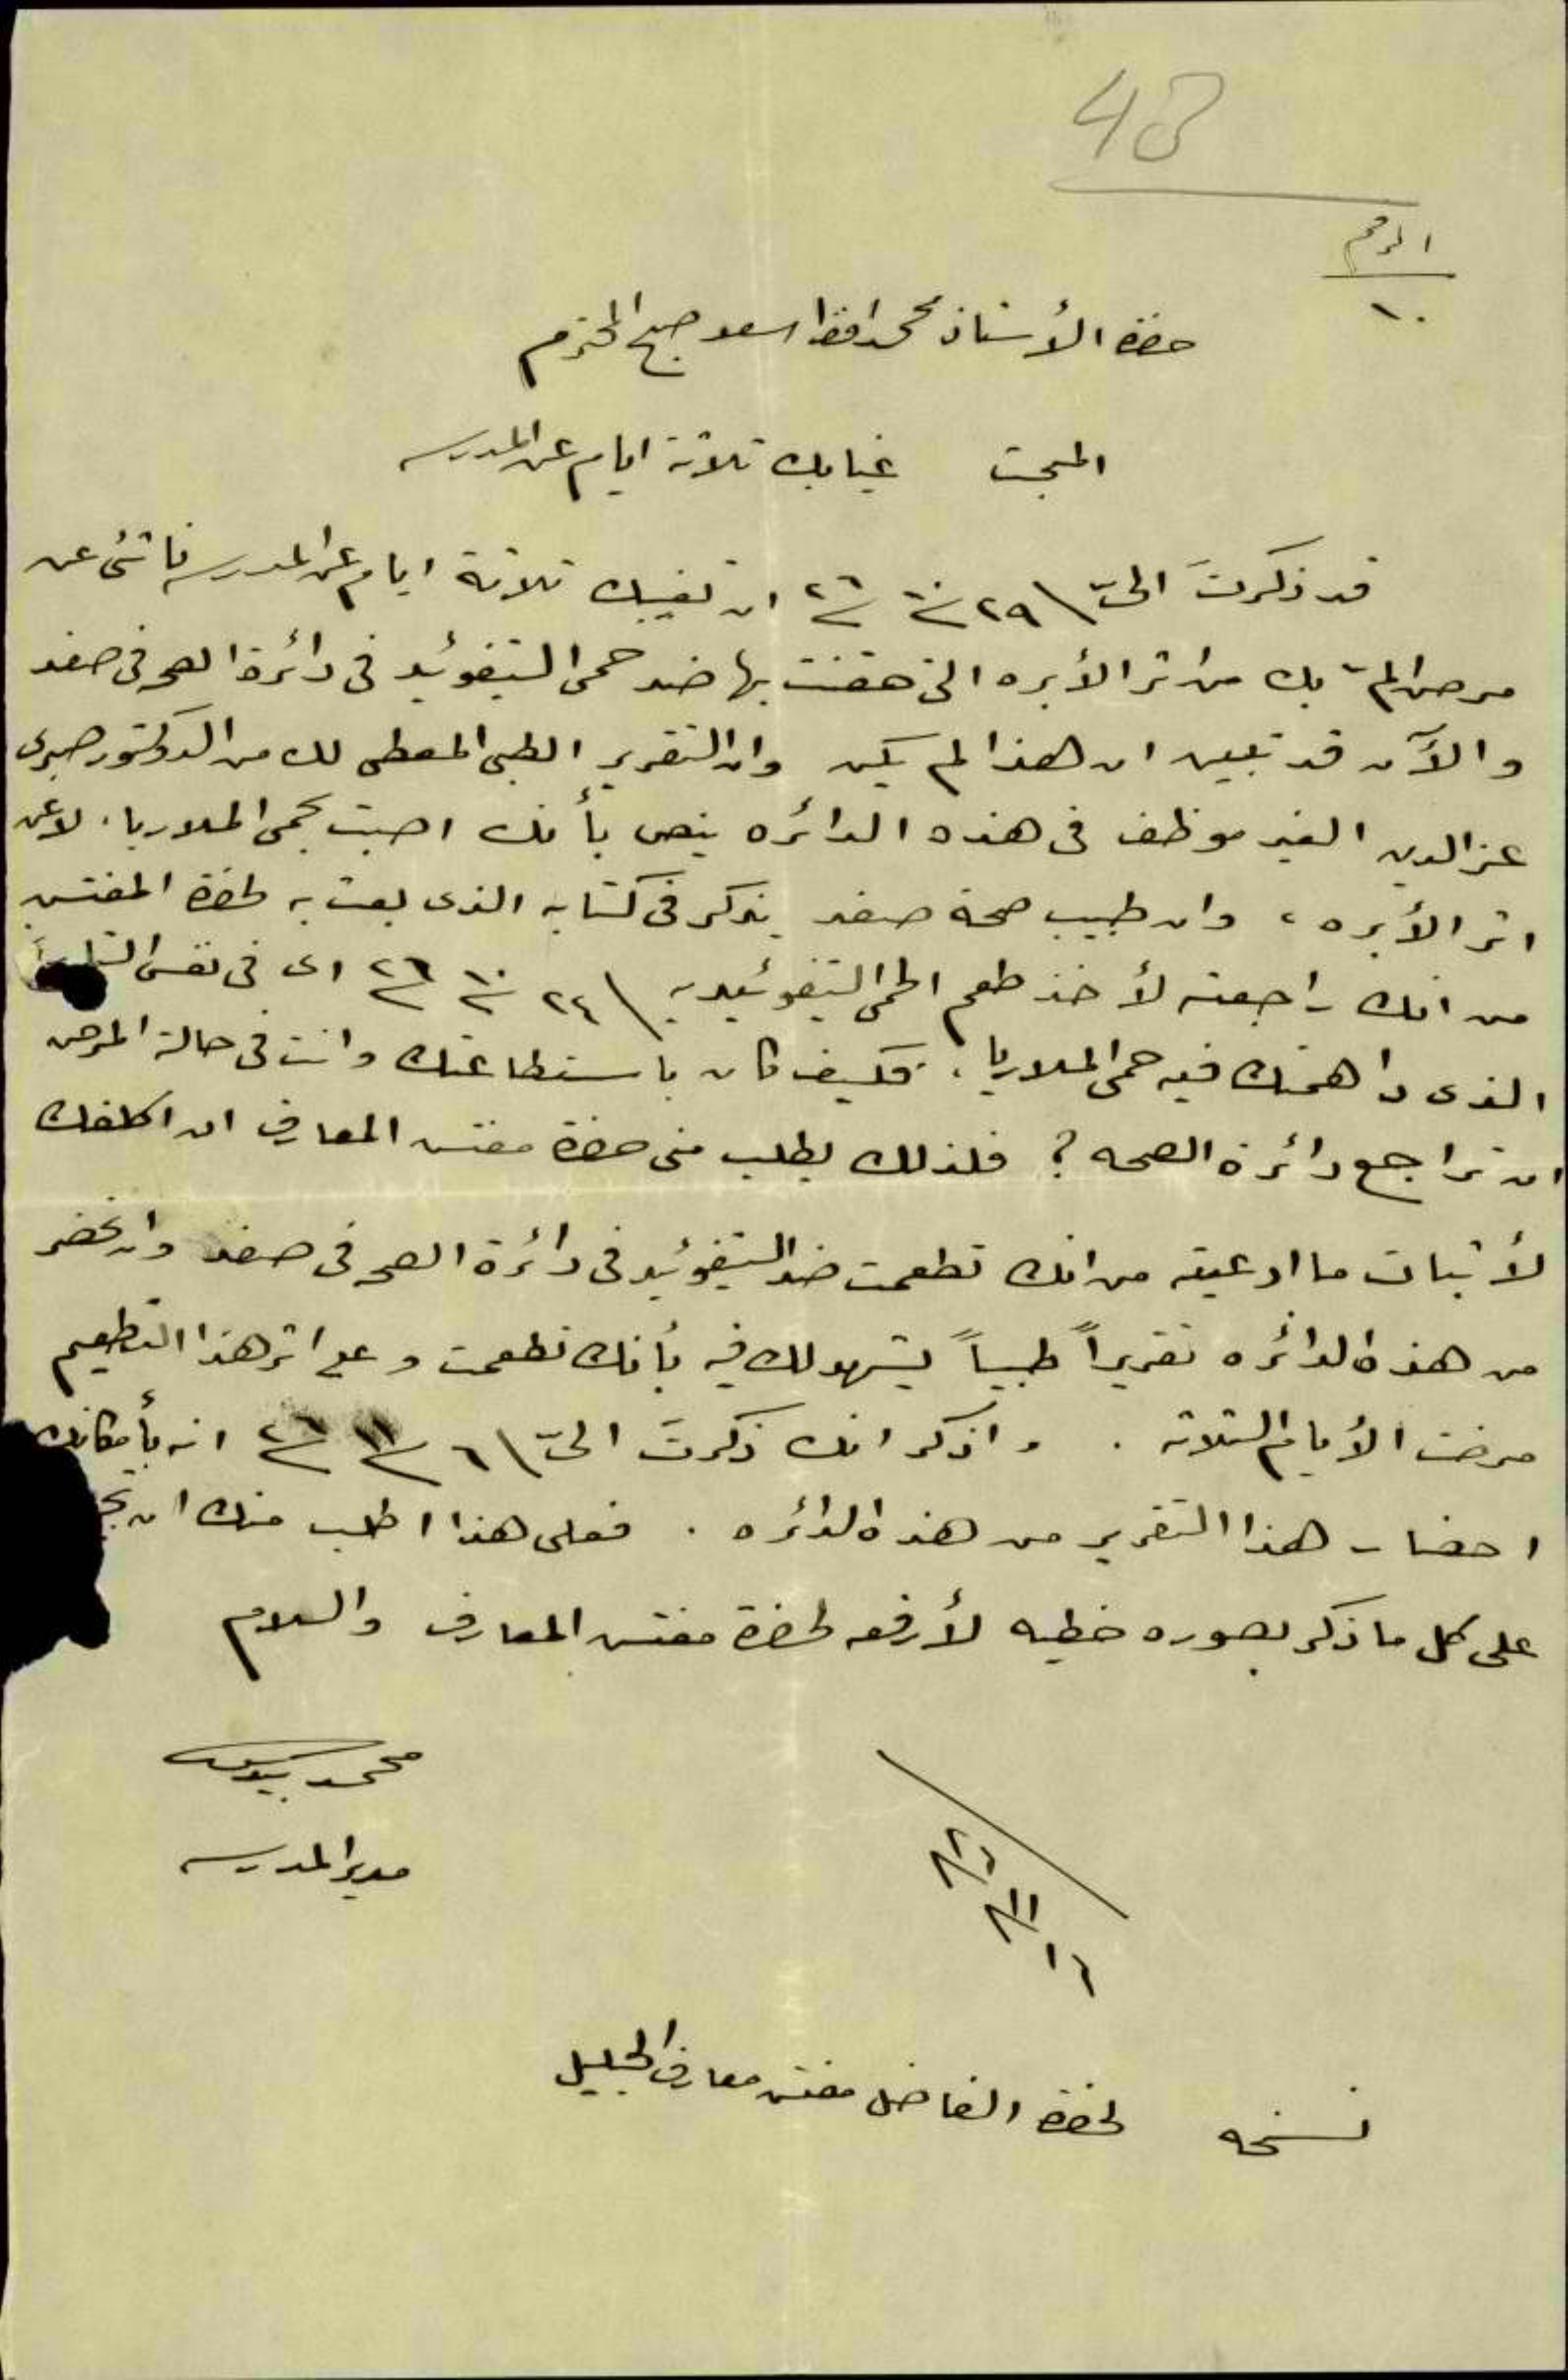 48
الرقم
١٠
حضرة الأستاذ محمد افندي اسعد صبح المحترم
المبحث غيابك ثلاثة ايام عن المدرسه
قد ذكرتَ اليّ ٢٩/١٠/٢٦ ان تغيبك ثلاثة ايام عن المدرسه ناتئ عن
مرض المّ بك من اثر الأبره التى حقنت بها ضد حمى التيفوئيد فى دائرة الصحه فى صفد
والآن قد تبين ان هذا لم يكن وان التقرير الطبى المعطى لك من الدوكتور صبرى
عز الدين الغير موظف فى هذه الدائره ينص بأنك اصبت بحمى الملاريا، لا عن
اثر الأبره، وان طبيب صحة صفد يذكر فى كتابه الذى بعث به لحضرة المفتش
من انك راجعته لأخذ طعم الحمى التيفوئيديه ٢٤/١٠/٢٦ اى فى نفس
الذى داهمتك فيه حمى الملاريا، فكيف كان باستطاعتك وانت فى حالة المرض
ان تراجع دائرة الصحه؟ فلذلك يطلب منى حضرة مفتش المعارف ان اكلفك
لأثبات ما ادعيته من انك تطعمت ضد التيفوئيد فى دائرة الصحه فى صفد وان تحضر
من هذه الدائره تقريراً طبياً يشهد لك فيه بأنك تطعمت وعلى اثر هذا التطعيم
مرضت الأيام الثلاثه. واذكر انك ذكرتَ اليّ ٦/١١/٢٦ انه بأمكانك
احضار هذا التقرير من هذه الدائره. فعلى هذا اطلب منك ان
على كل ما ذكر بصوره خطيه لأرفعه لحضرة مفتش المعارف والسلام
محمد
مدير المدرسه
١٦/١١/٢٦
نسخه لحضرة الفاضل مفتش معارف الجليل